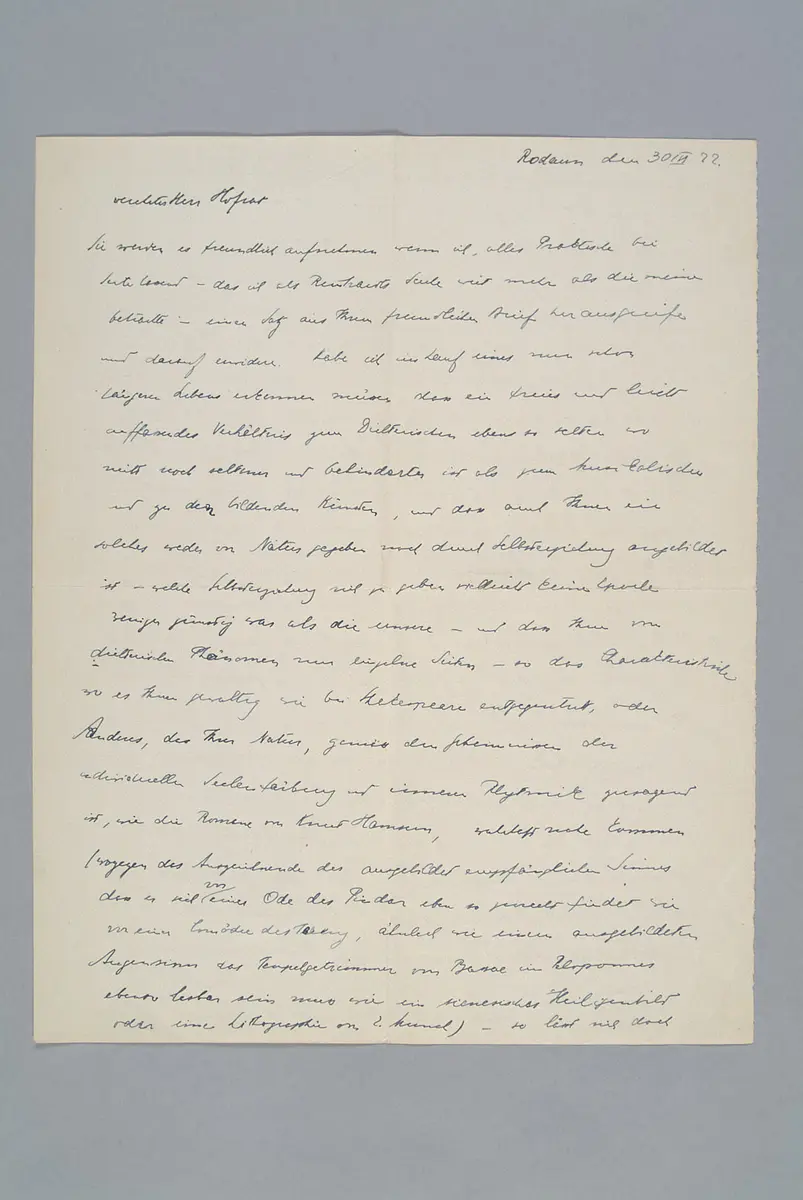 Rodaun den 30 VI 22.
verehrter Herr Hofrat
Sie werden es freundlich aufnehmen wenn ich, alles Praktische bei
Seite lassend – das ich als Reinhardts Seite weit mehr als die meine
betrachte – einen Satz aus Ihrem freundlichen Brief herausgreife
und darauf erwidere. Habe ich im Lauf eines nun schon
längeren Lebens erkennen müssen dass ein freies und leicht
auffassendes Verhältnis zum Dichterischen ebenso selten wo
nicht noch seltener und behinderter ist als zum Musikalischen
und zu den bildenden Künsten, und dass auch Ihnen ein
solches weder von Natur gegeben noch durch Selbsterziehung angebildet
ist – welche Selbsterziehung sich zu geben vielleicht keine Epoche
weniger günstig war als die unsere – und dass Ihnen vom
dichterischen Phänomen nur einzelne Seiten – so das Charakteristische
wo es Ihnen gewaltig wie bei Shakespeare entgegentritt, oder
Anderes, das Ihrer Natur, gemäss den Geheimnissen der
individuellen Seelenfärbung und inneren Rhythmik zusagend
ist, wie die Romane von Knut Hamsun, wahrhaft nahe kommen
(wogegen das Auszeichnende des ausgebildet empfänglichen Sinnes
dass es sich vor einer Ode des Pindar eben so zurecht findet wie
vor einer Comödie des, ähnlich wie einem ausgebildeten
Augensinn das Tempelgetrümmer von Bassae im Peloponnes
ebenso lesbar sein muss wie ein sienesisches Heiligenbild
oder eine Lithographie von E. Munch) – so lässt sich doch